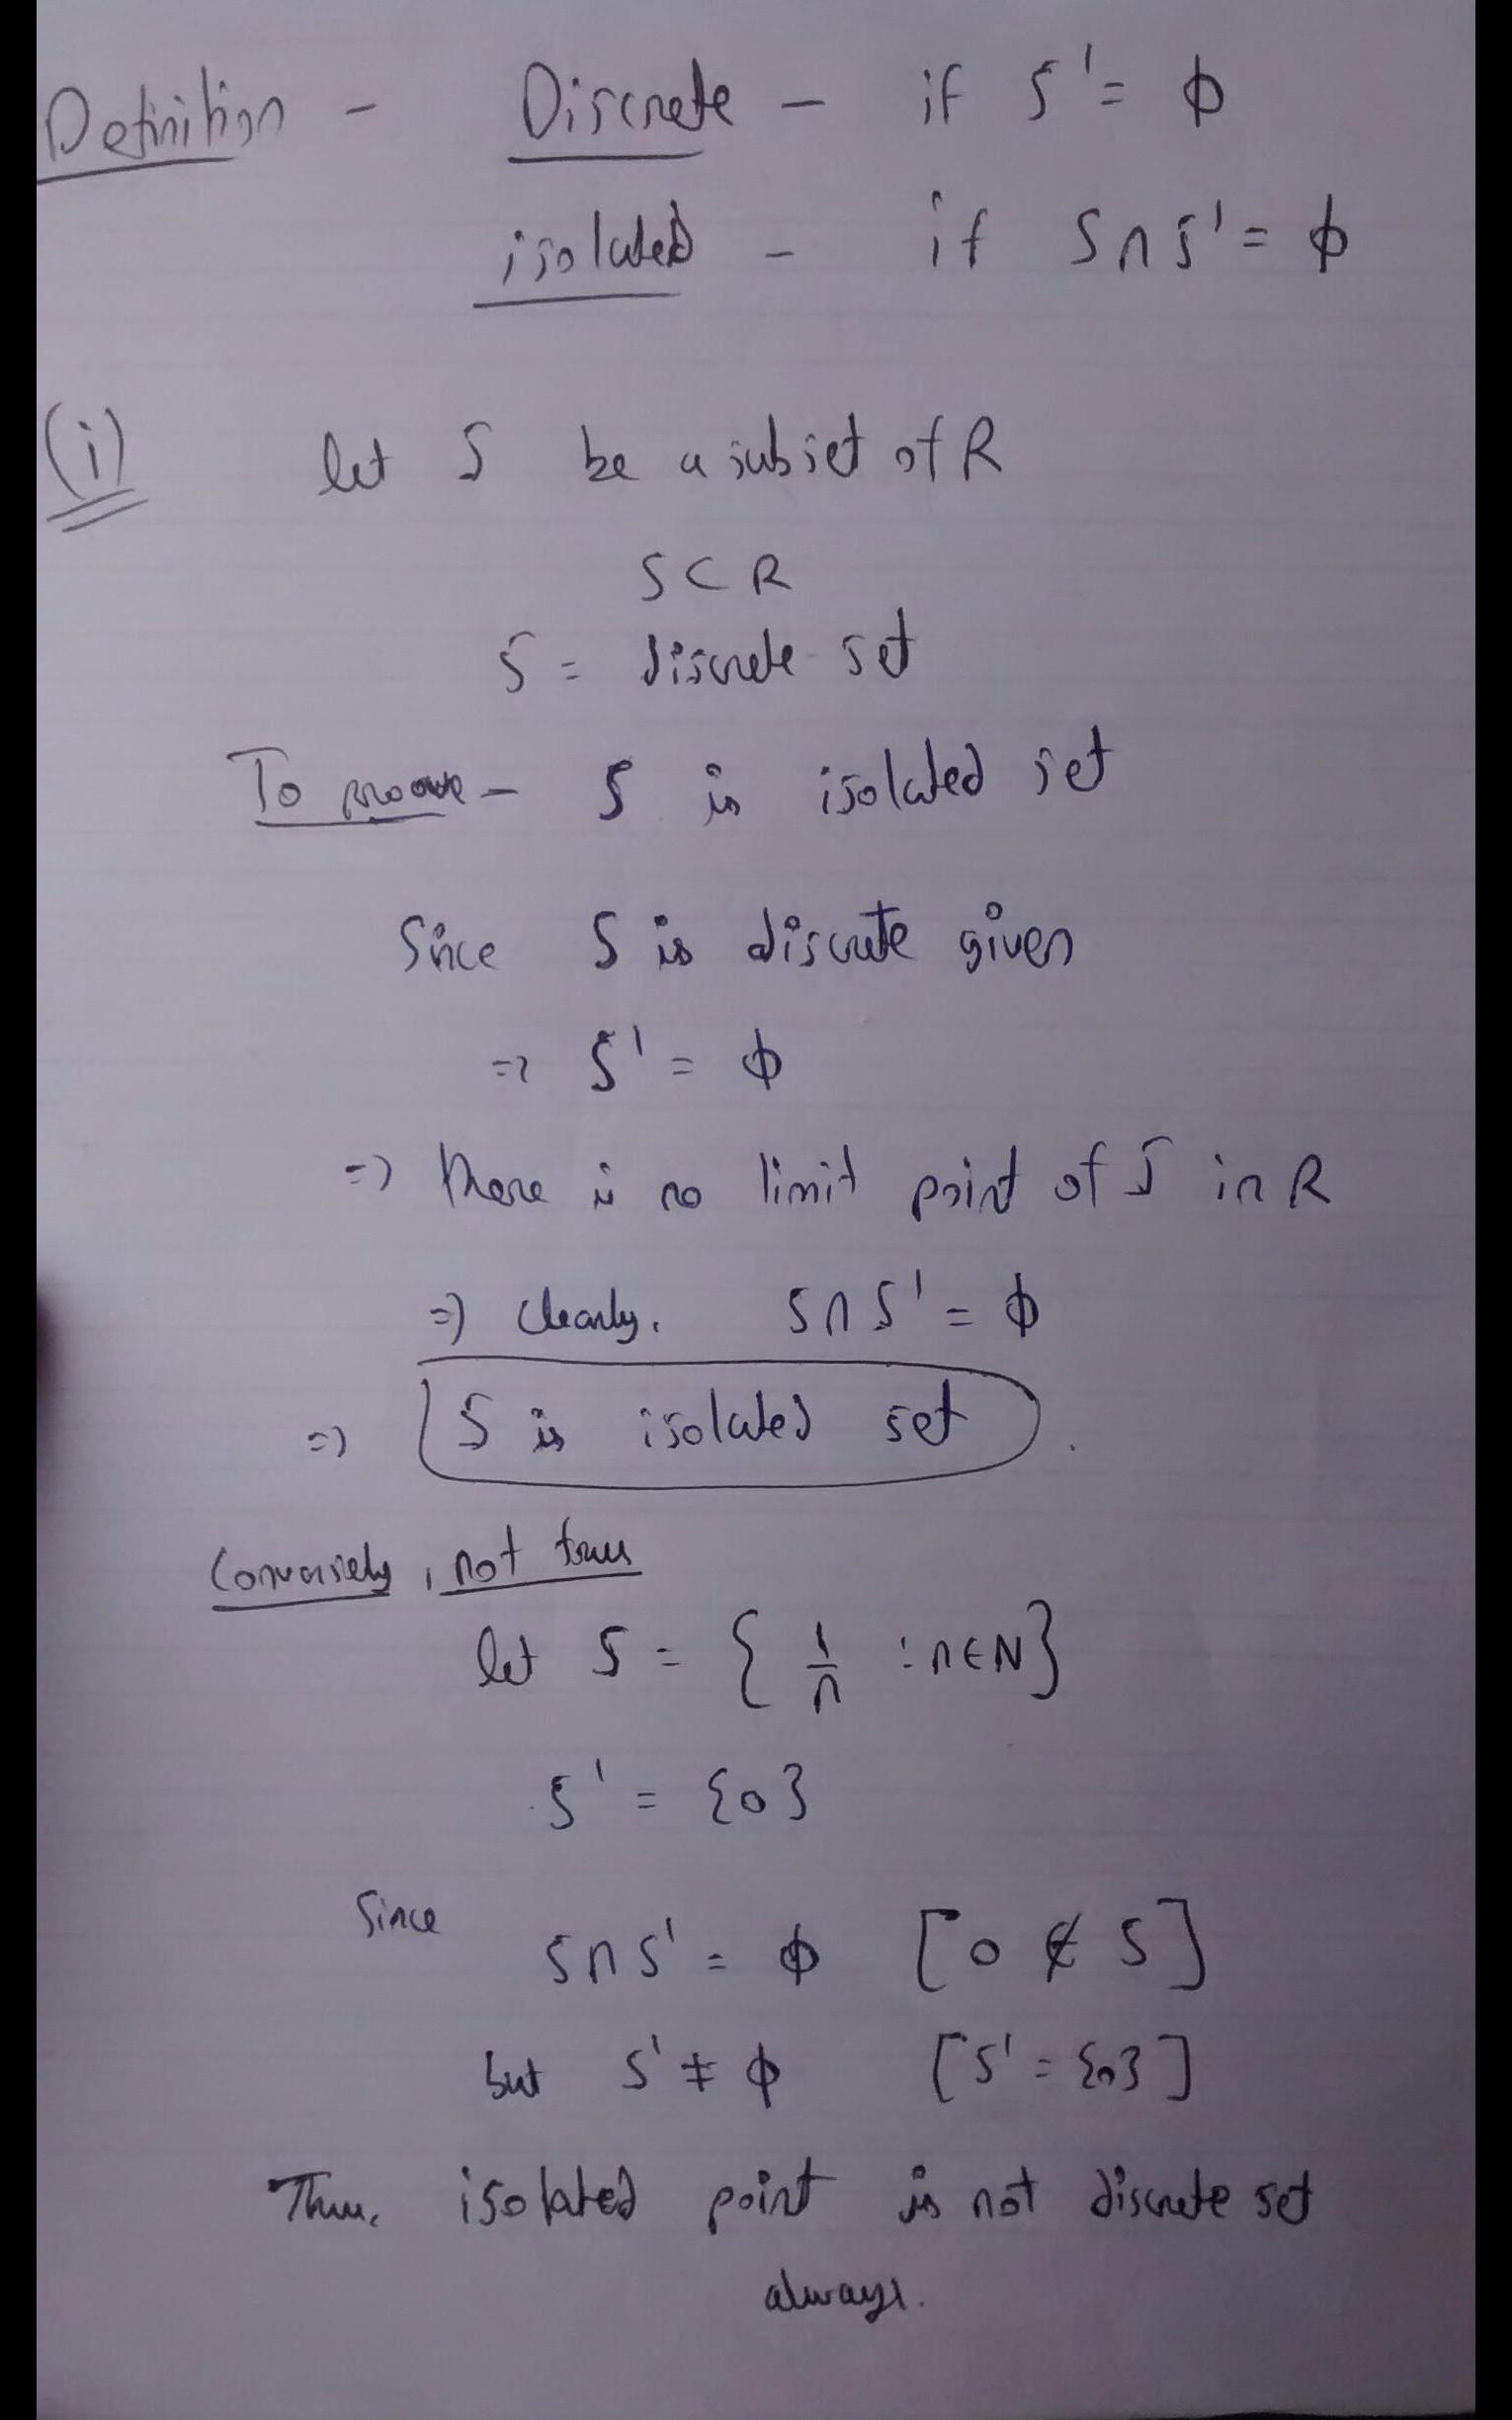 Definition - Discrete - if S' = ϕ
isolated - if S∩S' = ϕ
(i) let S be a subset of R
S ⊂ R
S = discrete set
To prove - S is isolated set
Since S is discrete given
=> S' = ϕ
=> there is no limit point of S in R
=> clearly. S∩S' = ϕ
=> S is isolated set.
Conversely, not true
let S = { 1/n : n∈N}
S' = {0}
Since
S∩S' = ϕ [0 ∉ S]
but S' ≠ ϕ [S' = {0}]
Thus, isolated point is not discrete set
always.